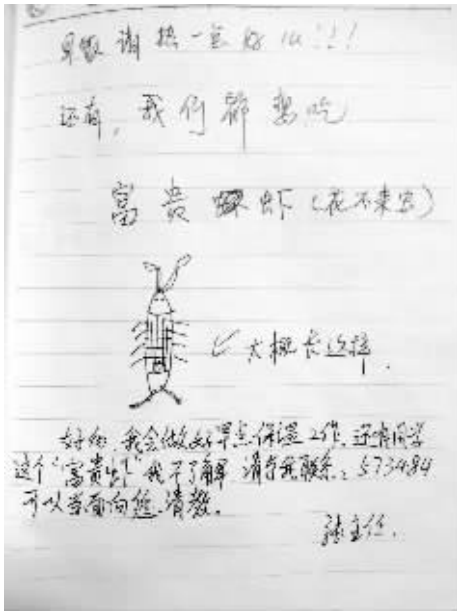 早饭请热一点好吗!!!
还有,我们都想吃
富贵虾(花不来宫)
↙大概长这样.
好的 我会做好早点保温工作.还有同学
这个“富贵虾”我不了解 请与我联系:573484
可以当面向您请教.
张主任.